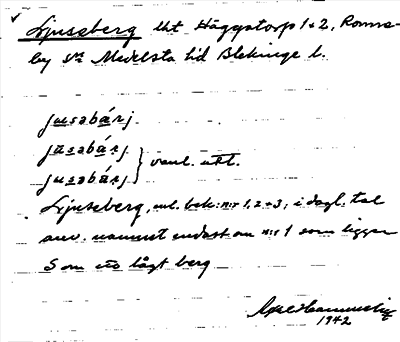 Ljuseberg lht Häggatorp 1+2, Ronne-
by sn Medelsta hd Blekinge l.
jusəbárj
jusabárj } vanl. utt.
jusabárj
Ljuseberg, enl. bek: nr 1, 2 o 3, i dagl. tal
anv. namnet endast om nr 1 som ligger
S om ett lågt berg
1942